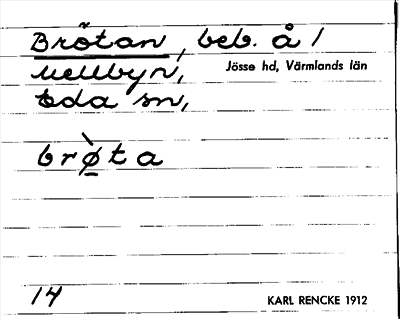 Brötan, beb. å /
Mellbyn, Jösse hd, Värmlands län
Eda sn,
brø̀ta
14 KARL RENCKE 1912